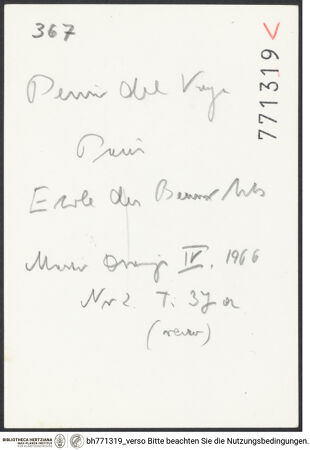 367
771319
Perin del Vaga
Paris
Ecole des Beaux Arts
Master Drawings IV, 1966
Nr 2 T. 37 a
(recto)
BIBLIOTHECA HERTZIANA
MAX-PLANCK-INSTITUT
bh771319_verso Bitte beachten Sie die Nutzungsbedingungen.